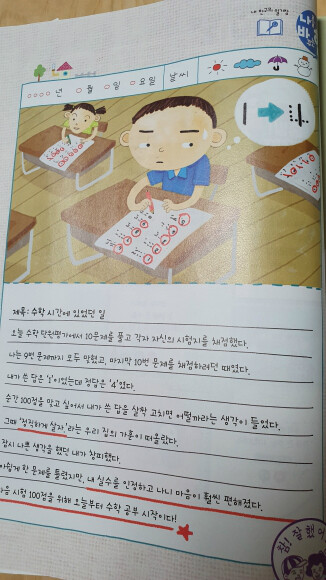 내 친구의 일기장
○○○○ 년 ○월 ○일 ○요일 날씨
제목: 수학 시간에 있었던 일
오늘 수학 단원평가에서 10문제를 풀고 각자 자신의 시험지를 채점했다.
나는 9번 문제까지 모두 맞혔고, 마지막 10번 문제를 채점하려던 때였다.
내가 쓴 답은 '1'이었는데 정답은 '4'였다.
순간 100점을 맞고 싶어서 내가 쓴 답을 살짝 고치면 어떨까라는 생각이 들었다.
그때 '정직하게 살자.'라는 우리 집의 가훈이 떠올랐다.
잠시 나쁜 생각을 했던 내가 창피했다.
한 문제를 틀렸지만, 내 실수를 인정하고 나니 마음이 훨씬 편해졌다.
다음 시험 100점을 위해 오늘부터 수학 공부 시작이다!
참! 잘했어